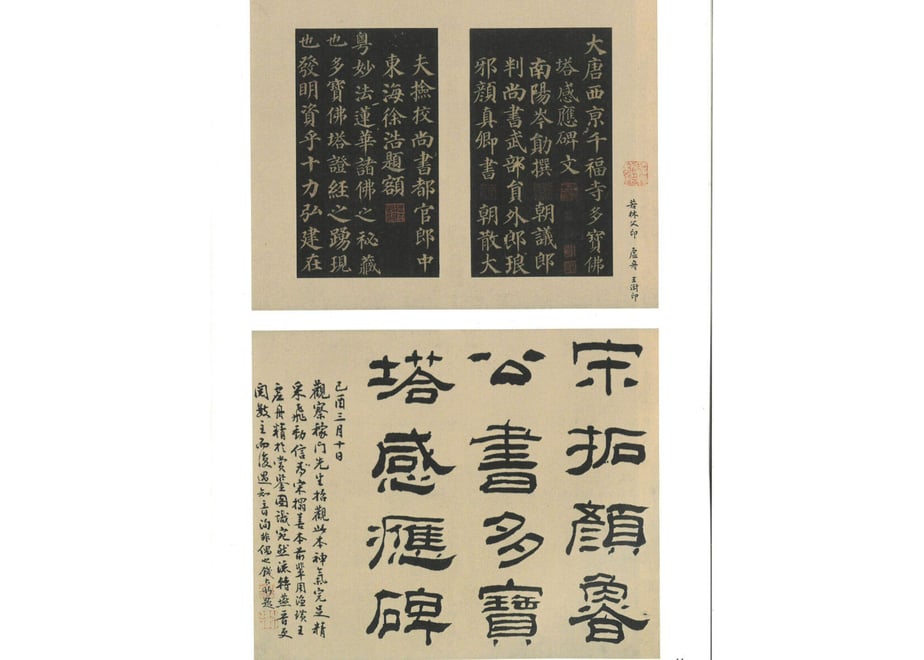 大唐西京千福寺多寶佛
塔感應碑文
南陽岑勛撰 朝議郎
判尚書武部員外郎琅
邪顏真卿書 朝散大
夫撿挍尚書都官郎中
東海徐浩題額
粵妙法蓮華諸佛之祕藏
也多寶佛塔證經之踴現
也發明資乎十力弘建在
若林父印 虛舟 王澍印
宋拓顏魯
公書多寶
塔感應碑
己酉三月十日
觀察稼門先生招觀此本神氣完足精
采飛動信爲宋搨善本前輩用漁璜王
虛舟精於賞鑒圖識宛然流轉燕晉更
閱數主而復遇知音洵非偶也錢大昕題